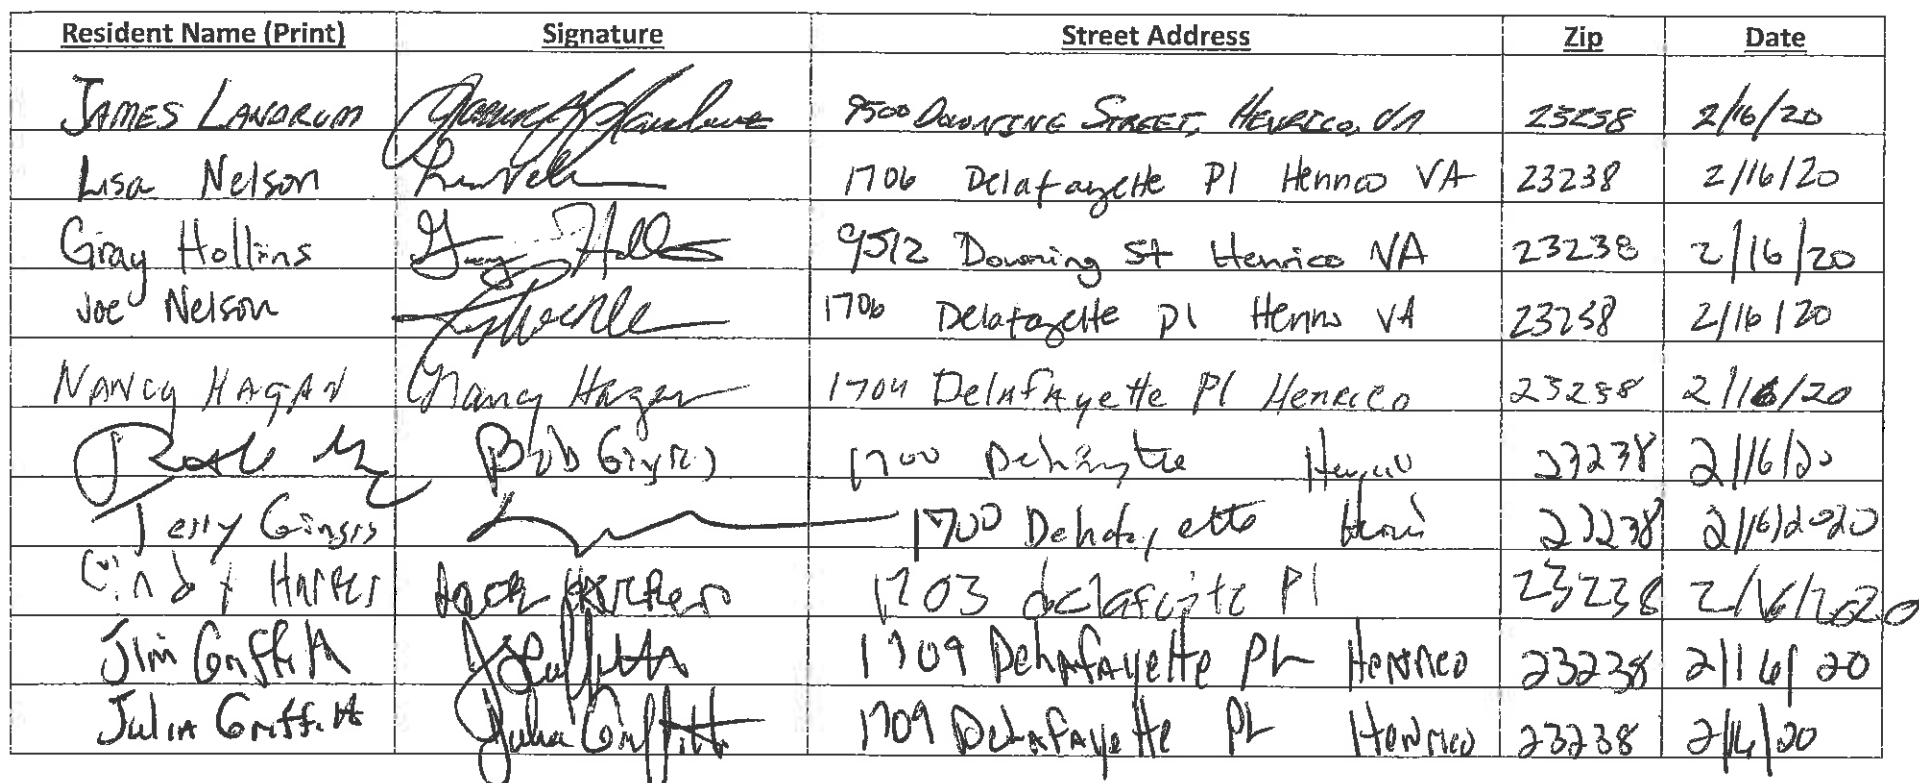 Resident Name (Print) Signature Street Address Zip Date
JAMES LANDRUM 9500 DOWNING STREET, HENRICO, VA 23238 2/16/20
Lisa Nelson 1706 Delafayette Pl Henrico VA 23238 2/16/20
Gray Hollins Gray Hollins 9512 Downing St Henrico VA 23238 2/16/20
Joe Nelson 1706 Delafayette Pl Henrico VA 23238 2/16/20
NANCY HAGAN Nancy Hagan 1704 Delafayette Pl Henrico 23238 2/16/20
Bob 1700 Henrico 23238 2/16/20
Terry 1700 Delafayette 23238 2/16/2020
Cindy Harper 1703 delafaite Pl 23238 2/16/2020
Jim Griffith J Griffith 1709 Delafayette PL Henrico 23238 2/16/20
Julia Griffith Julia Griffith 1709 Delafayette PL Henrico 23238 2/16/20